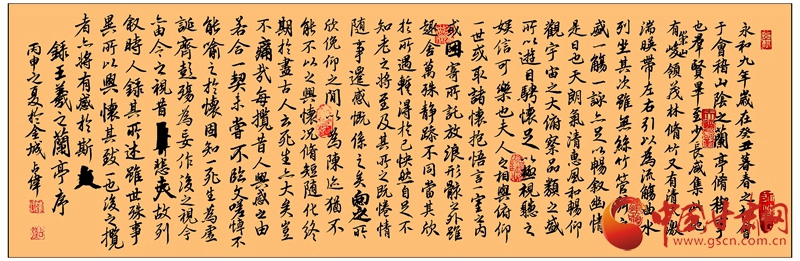 永和九年歲在癸丑暮春之初會
于會稽山陰之蘭亭脩稧事
也群賢畢至少長咸集此地
有崇山峻領茂林脩竹又有清流激
湍暎帶左右引以為流觴曲水
列坐其次雖無絲竹管弦之
盛一觴一詠亦足以暢敘幽情
是日也天朗氣清惠風和暢仰
觀宇宙之大俯察品類之盛
所以遊目騁懷足以極視聽之
娛信可樂也夫人之相與俯仰
一世或取諸懷抱悟言一室之內
或因寄所託放浪形骸之外雖
趣舍萬殊靜躁不同當其欣
於所遇蹔得於己怏然自足不
知老之將至及其所之既惓情
隨事遷感慨係之矣向之所
欣俛仰之間以為陳迹猶不
能不以之興懷況脩短隨化終
期於盡古人云死生亦大矣豈
不痛哉每攬昔人興感之由
若合一契未嘗不臨文嗟悼不
能喻之於懷固知一死生為虛
誕齊彭殤為妄作後之視今
亦由今之視昔悲夫故列
敘時人錄其所述雖世殊事
異所以興懷其致一也後之攬
者亦將有感於斯
錄王羲之蘭亭序
丙申之夏於金城
中国甘肃网
www.gscn.com.cn